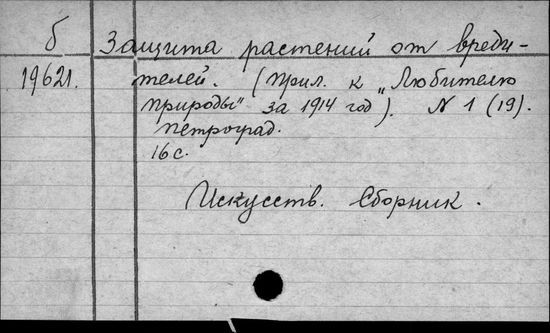 б Защита растений от вреди-
19621. телей. (Прил. к „Любителю
природы" за 1914 год). N 1 (19).
Петроград.
16 с.
Искусств. Сборник.